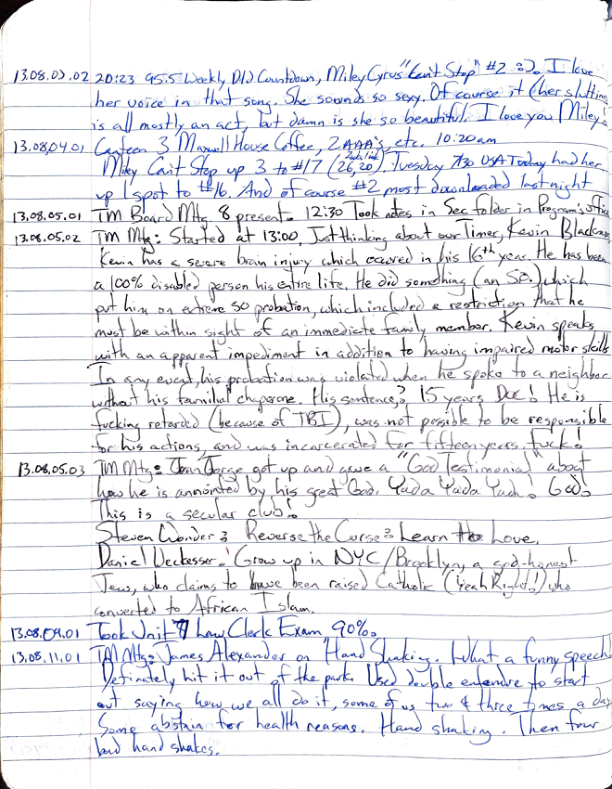 13.08.03.02 20:23 95.5 Weekly D/D Countdown, Miley Cyrus "Can't Stop" #2 :). I love
her voice in that song. She sounds so sexy. Of course it (her slutting
is all mostly an act, but damn is she so beautiful. I love you Miley!
13.08.04.01 Canteen 3 Maxwell House Coffee, 2 AAA's, etc. 10:20am
Miley Can't Stop up 3 to #17 (26,20). Tuesday 7:30 USA Today had her
up 1 spot to #16. And of course #2 most downloaded last night
13.08.05.01 TM Board Mtg 8 present. 12:30 Took notes in Sec folder in Program's office
13.08.05.02 TM Mtg: Started at 13:00. Just thinking about our Timer, Kevin
Kevin has a severe brain injury which occured in his 16th year. He has been
a 100% disabled person his entire life. He did something (an SO.) which
put him on extreme SO probation, which included a restriction that he
must be within sight of an immediate family member. Kevin speaks
with an apparent impediment in addition to having impaired motor skills
In any event, his probation was violated when he spoke to a neighbor
without his familial chaperone. His sentence? 15 years DOC! He is
fucking retarded (because of TBI), was not possible to be responsible
for his actions, and was incarcerated for fifteen years. Fuck!
13.08.05.03 TM Mtg: George got up and gave a "God Testimonial" about
how he is annointed by his great God. Yada Yada Yada. God!
This is a secular club!
Steven Wonder: Reverse the Curse: Learn to Love.
Daniel: Grow up in NYC/Brooklyn, a god-honest
Jew, who claims to have been raised Catholic (Yeah Right!) who
converted to African Islam.
13.08.09.01 Took Unit 7 Law Clerk Exam 90%.
13.08.11.01 TM Mtg: James Alexander on "Hand Shaking. What a funny speech
Definately hit it out of the park. Used double entendre to start
out saying how we all do it, some of us two & three times a day
Some abstain for health reasons. Hand shaking. Then four
bad hand shakes.